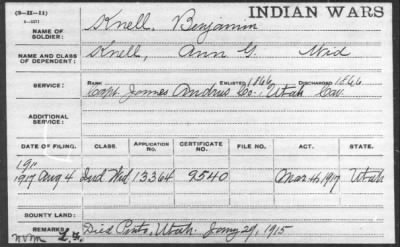 (3-II-11)
INDIAN WARS
NAME OF SOLDIER: Knell, Benjamin
NAME AND CLASS OF DEPENDENT: Knell, Ann G. Wid
SERVICE: RANK ENLISTED 1866 DISCHARGED 1866
Capt. James Andrus Co., Utah Cav.
ADDITIONAL SERVICE:
DATE OF FILING. CLASS. APPLICATION NO. CERTIFICATE NO. FILE NO. ACT. STATE.
1917 Aug 4 Ind Wid 13364 9540 Mar 4, 1917 Utah
BOUNTY LAND:
REMARKS: Died Pinto, Utah. Jany 29, 1915